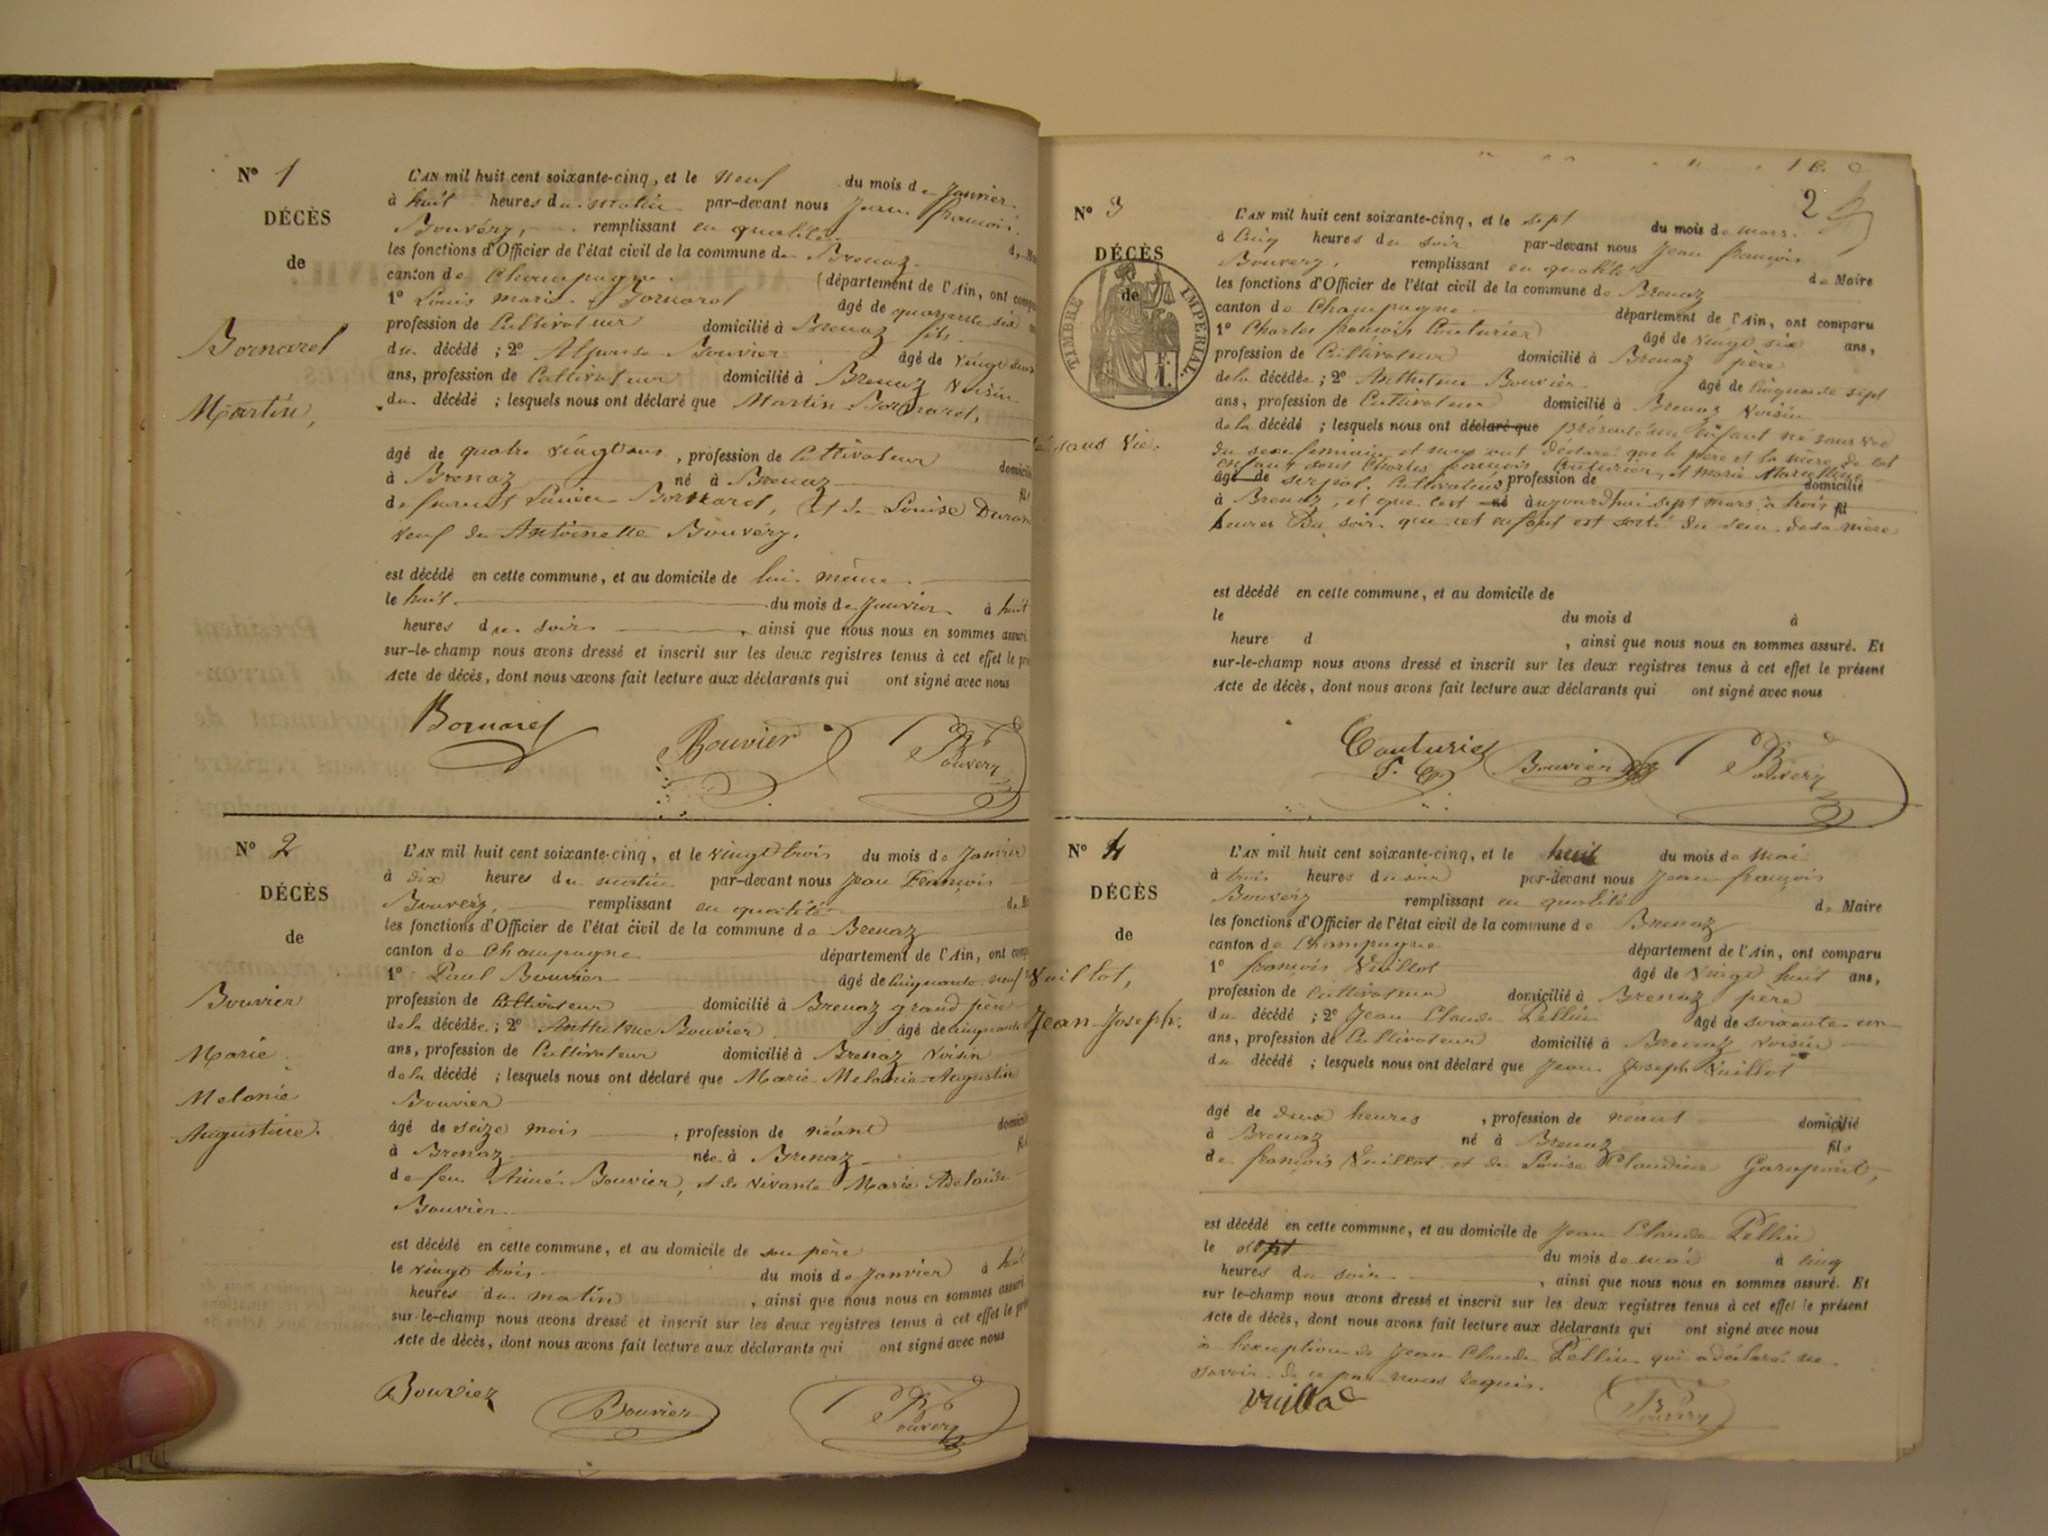 N° 1
DÉCÈS
de
Bornarel
Martin,
L'AN mil huit cent soixante-cinq, et le neuf du mois de Janvier
à huit heures du matin par-devant nous Jean françois
Bouvéry, remplissant en qualité
les fonctions d'Officier de l'état civil de la commune de Brenaz
canton de Champagne département de l'Ain, ont
1° Louis marie Bornarel âgé de quarante six
profession de Cultivateur domicilié à Brenaz fils
du décédé ; 2° Alponse Bouvier âgé de vingt
ans, profession de Cultivateur domicilié à Brenaz Voisin
du décédé ; lesquels nous ont déclaré que Martin Bornarel,
âgé de quatre vingt ans, profession de Cultivateur
à Brenaz né à Brenaz
de Bornarel, et de Louise
veuf de Antoinette Bouvéry.
est décédé en cette commune, et au domicile de lui même
le huit du mois de Janvier à huit
heures du soir, ainsi que nous nous en sommes
sur-le-champ nous avons dressé et inscrit sur les deux registres tenus à cet effet le
Acte de décès, dont nous avons fait lecture aux déclarants qui ont signé avec nous
Bornarel Bouvier Bouvery
N° 2
DÉCÈS
de
Bouvier
Marie
Melanie
Augustine.
L'AN mil huit cent soixante-cinq, et le vingt trois du mois de Janvier
à dix heures du matin par-devant nous Jean François
Bouvéry, remplissant en qualité
les fonctions d'Officier de l'état civil de la commune de Brenaz
canton de Champagne département de l'Ain, ont
1° Paul Bouvier âgé de cinquante neuf
profession de Cultivateur domicilié à Brenaz grand père
de la décédée ; 2° Anthelme Bouvier âgé de cinquante
ans, profession de Cultivateur domicilié à Brenaz Voisin
de la décédé ; lesquels nous ont déclaré que Marie Melanie Augustin
Bouvier
âgé de seize mois, profession de néant
à Brenaz née à Brenaz
de feu Aimé Bouvier, et de vivante Marie Adelaide
Bouvier
est décédé en cette commune, et au domicile de son père
le vingt trois du mois de Janvier à huit
heures du matin, ainsi que nous nous en sommes
sur-le-champ nous avons dressé et inscrit sur les deux registres tenus à cet effet le
Acte de décès, dont nous avons fait lecture aux déclarants qui ont signé avec nous
Bouvier Bouvier Bouvery
2
N° 3
DÉCÈS
de
TIMBRE IMPÉRIAL
sans Vie.
L'AN mil huit cent soixante-cinq, et le sept du mois de mars
à Cinq heures du soir par-devant nous Jean françois
Bouvery, remplissant en qualité de Maire
les fonctions d'Officier de l'état civil de la commune de Brenaz
canton de Champagne département de l'Ain, ont comparu
1° Charles françois Couturier âgé de vingt six ans,
profession de Cultivateur domicilié à Brenaz père
de la décédée ; 2° Anthelme Bouvier âgé de Cinquante sept
ans, profession de Cultivateur domicilié à Brenaz Voisin
de la décédé ; lesquels nous ont déclaré que présenté un Enfant né sans vie
du sexe feminin et nous ont déclaré que le père et la mère de cet
enfant sont Charles françois Couturier, et marie
âgé de Cultivateurs, profession de domicilié
à Brenaz, et que c'est né à aujourd'hui sept mars à trois fil
heures du soir que cet enfant est sorti du sein de sa mère
est décédé en cette commune, et au domicile de
le du mois d à
heure d, ainsi que nous nous en sommes assuré. Et
sur-le-champ nous avons dressé et inscrit sur les deux registres tenus à cet effet le présent
Acte de décès, dont nous avons fait lecture aux déclarants qui ont signé avec nous
Couturier Bouvier Bouvery
N° 4
DÉCÈS
de
Vuillot,
Jean Joseph.
L'AN mil huit cent soixante-cinq, et le huit du mois de mai
à trois heures du soir par-devant nous Jean françois
Bouvéry remplissant en qualité de Maire
les fonctions d'Officier de l'état civil de la commune de Brenaz
canton de Champagne département de l'Ain, ont comparu
1° françois Vuillot âgé de Vingt huit ans,
profession de Cultivateur domicilié à Brenaz père
du décédé ; 2° Jean Claude Pellin âgé de soixante un
ans, profession de Cultivateur domicilié à Brenaz voisin
du décédé ; lesquels nous ont déclaré que Jean Joseph Vuillot
âgé de deux heures, profession de néant domicilié
à Brenaz né à Brenaz fils
de françois Vuillot et de Louise Claudine
est décédé en cette commune, et au domicile de Jean Claude Pellin
le sept du mois de mai à cinq
heures du soir, ainsi que nous nous en sommes assuré. Et
sur le-champ nous avons dressé et inscrit sur les deux registres tenus à cet effet le présent
Acte de décès, dont nous avons fait lecture aux déclarants qui ont signé avec nous
à l'exception de Jean Claude Pellin qui a déclaré ne
savoir de ce par nous requis.
Vuillot Bouvery